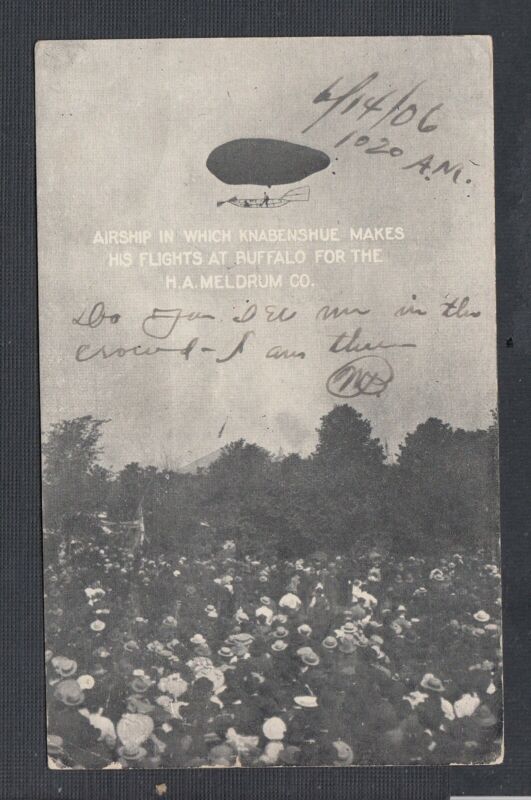 6/14/06
1020 A.M.
AIRSHIP IN WHICH KNABENSHUE MAKES
HIS FLIGHTS AT BUFFALO FOR THE
H.A. MELDRUM CO.
Do you see me in the
crowd - I am there